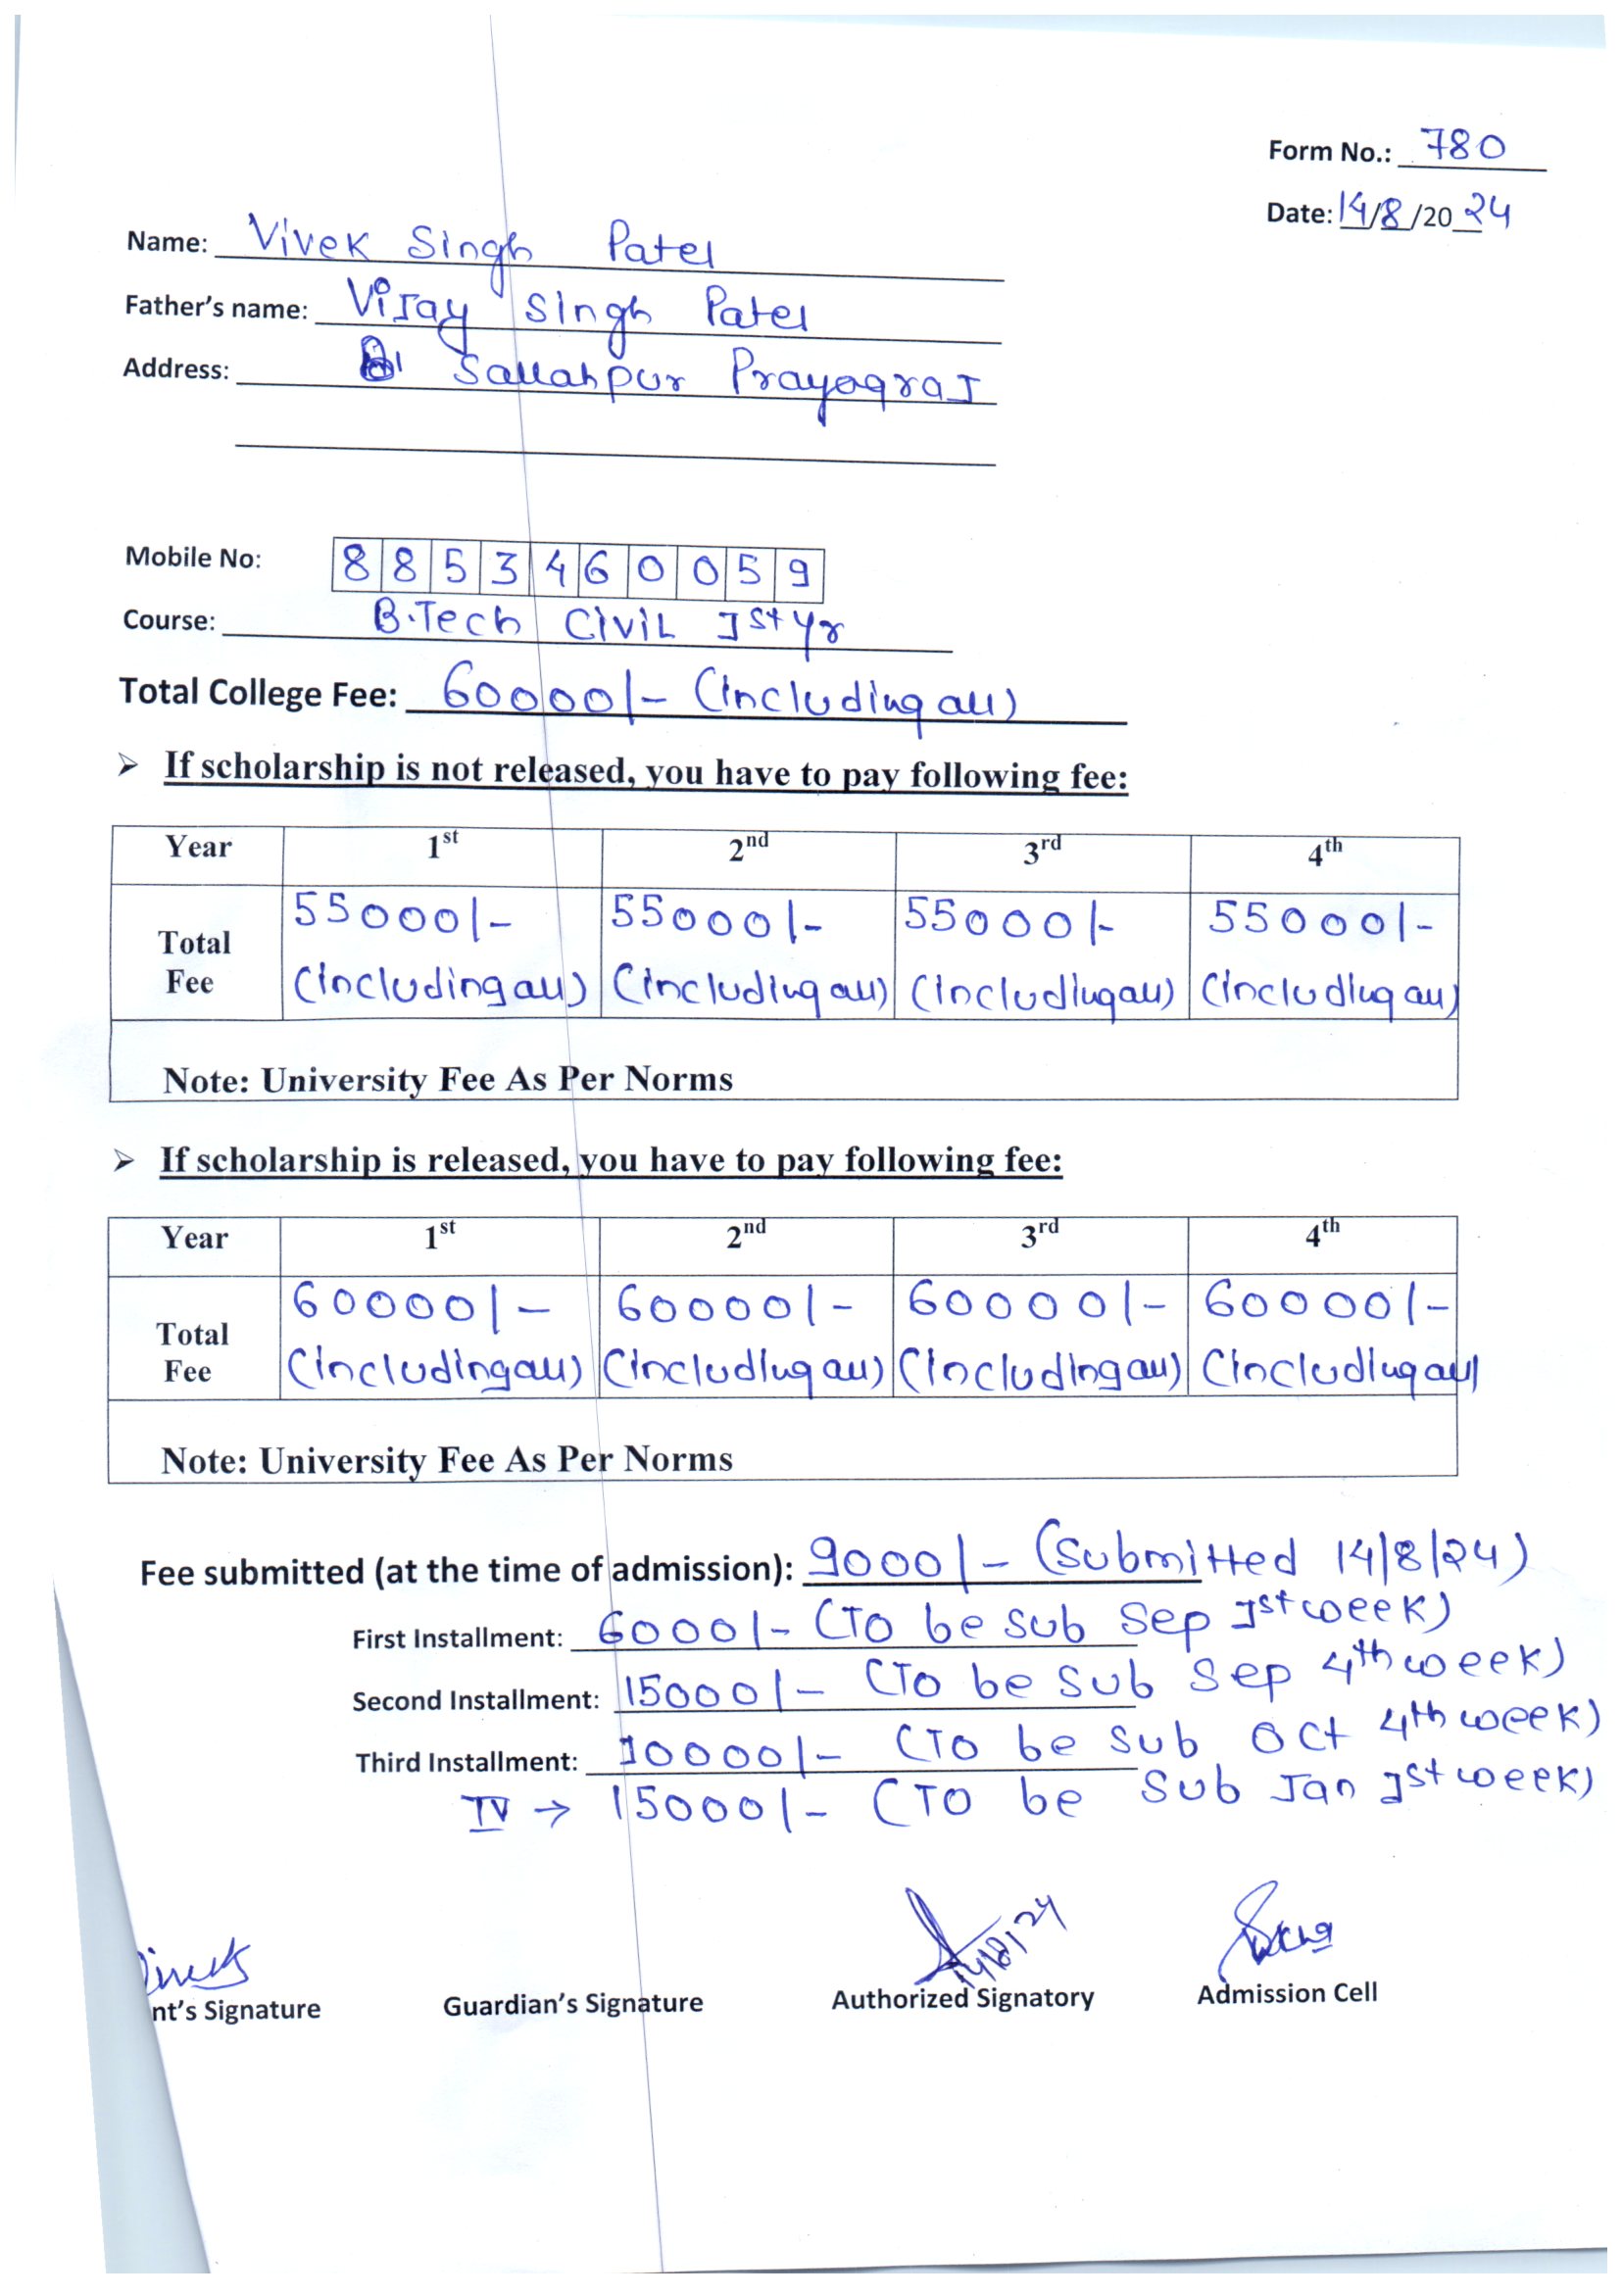 Form No.: 780
Date: 14/8/2024
Name: Vivek Singh Patel
Father's name: Vijay Singh Patel
Address: Sallahpur Prayagraj
Mobile No: 8853460059
Course: B.Tech Civil Ist yr
Total College Fee: 60000/- (including all)
➢ If scholarship is not released, you have to pay following fee:
Year 1st 2nd 3rd 4th
Total Fee 55000/- (including all) 55000/- (including all) 55000/- (including all) 55000/- (including all)
Note: University Fee As Per Norms
➢ If scholarship is released, you have to pay following fee:
Year 1st 2nd 3rd 4th
Total Fee 60000/- (including all) 60000/- (including all) 60000/- (including all) 60000/- (including all)
Note: University Fee As Per Norms
Fee submitted (at the time of admission): 9000/- (Submitted 14/8/24)
First Installment: 6000/- (To be sub Sep Ist week)
Second Installment: 15000/- (To be sub Sep 4th week)
Third Installment: 10000/- (To be sub Oct 4th week)
IV → 15000/- (To be sub Jan Ist week)
14/8/24
nt's Signature Guardian's Signature Authorized Signatory Admission Cell